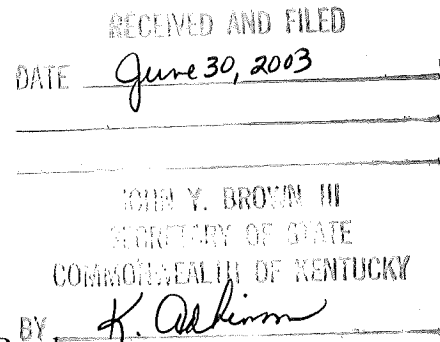 RECEIVED AND FILED
DATE June 30, 2003
JOHN Y. BROWN III
SECRETARY OF STATE
COMMONWEALTH OF KENTUCKY
BY K. Adkinson